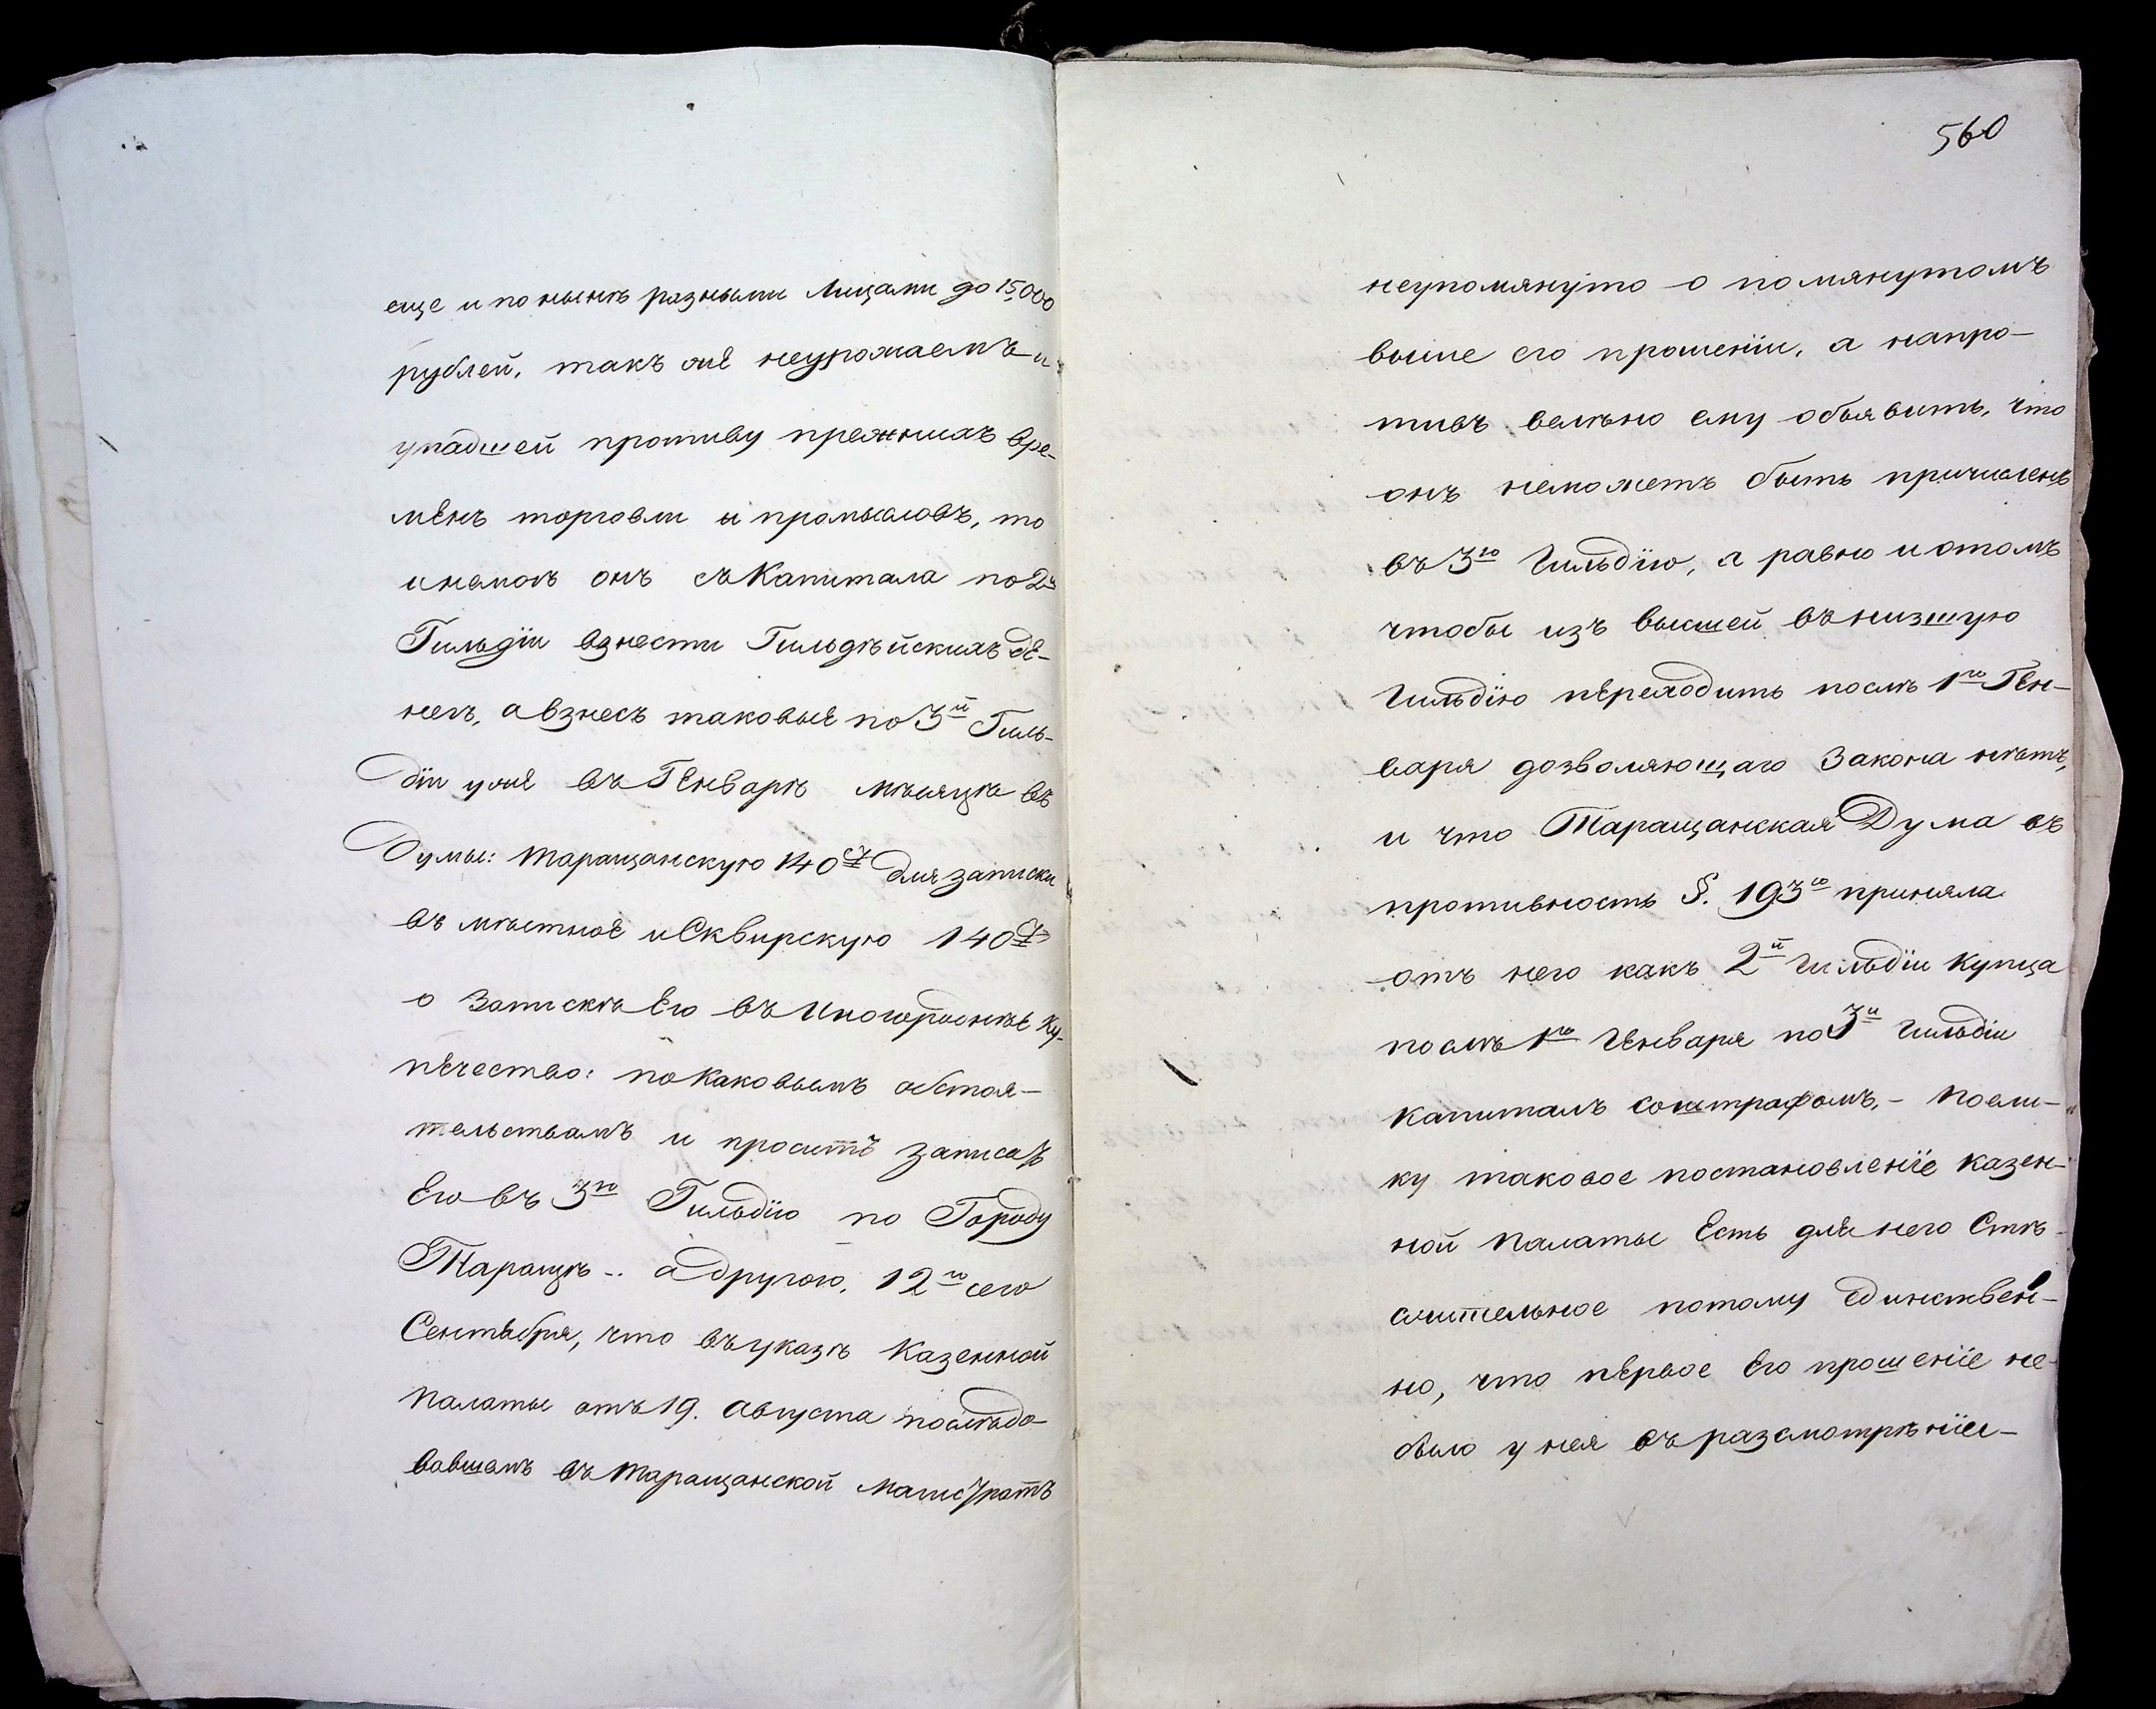 еще и по нынѣ разными Лицами до 15000
рублей, такъ же неурожаемъ и
упадшей противу прежнихъ вре-
мѣнъ торговли и промысловъ, то
и немогъ онъ съ Капитала по 2й
Гильдіи взнести Гильдѣйскихъ де-
негъ, а взнесъ таковые по 3й Гиль-
діи уже въ Генварѣ мѣсяцѣ въ
Думы: Таращанскую 140 для записки
въ мѣстное и Сквирскую 140
о Запискѣ Его въ Иногородные Ку-
печество: по каковымъ обстоя-
тельствамъ и проситъ записать
Его въ 3ю Гильдію по Городу
Таращѣ -. а другою, 12го сего
Сентября, что въ указѣ Казенной
палаты отъ 19. Августа послѣдо-
вавшемъ въ Таращанской Магистратъ
560
неупомянуто о помянутомъ
выше его прошеніи, а напро-
тивъ велѣно ему объявить, что
онъ неможетъ быть причисленъ
въ 3ю Гильдію, а равно и отомъ
чтобы изъ высшей въ низшую
Гильдію переходить послѣ 1го Ген-
варя дозволяющаго Закона нѣтъ,
и что Таращанская Дума въ
противность §. 193го приняла
отъ него какъ 2й Гильдіи Купца
послѣ 1го Генваря по 3й Гильдіи
капиталъ соштрафомъ, - Поели-
ку таковое постановленіе казен-
ной Палаты Есть для него Стѣ-
снительное потому единствен-
но, что первое Его прошеніе не-
было у нея въ разсмотрѣніи -